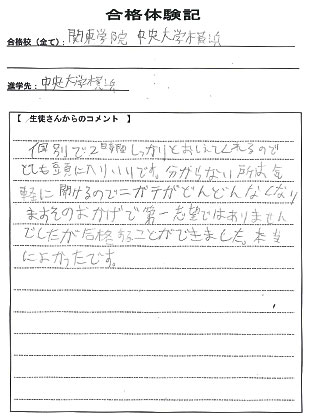 合格体験記
合格校（全て）: 関東学院 中央大学横浜
進学先: 中央大学横浜
【 生徒さんからのコメント 】
個別で2時間しっかりとおしえてくれるので
とても頭に入りいいです。分からない所は気
軽に聞けるのでニガテがどんどんなくなり
ますそのおかげで第一志望ではありません
でしたが合格することができました。本当
によかったです。